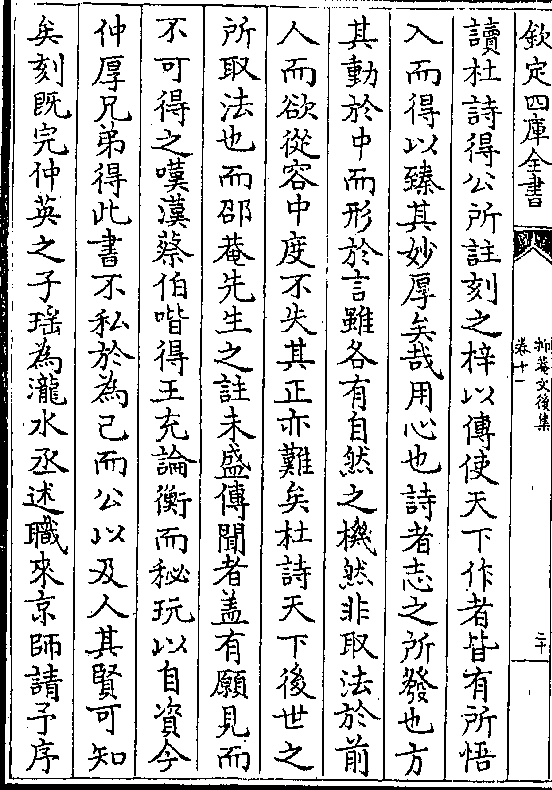 欽定四庫全書
抑菴文後集
卷十一
二十
讀杜詩得公所註刻之梓以傳使天下作者皆有所悟
入而得以臻其妙厚矣哉用心也詩者志之所發也方
其動於中而形於言雖各有自然之機然非取法於前
人而欲從容中度不失其正亦難矣杜詩天下後世之
所取法也而邵菴先生之註未盛傳聞者盖有願見而
不可得之嘆漢蔡伯喈得王充論衡而秘玩以自資今
仲厚兄弟得此書不私於為己而公以及人其賢可知
矣刻既完仲英之子瑶為瀧水丞述職來京師請予序